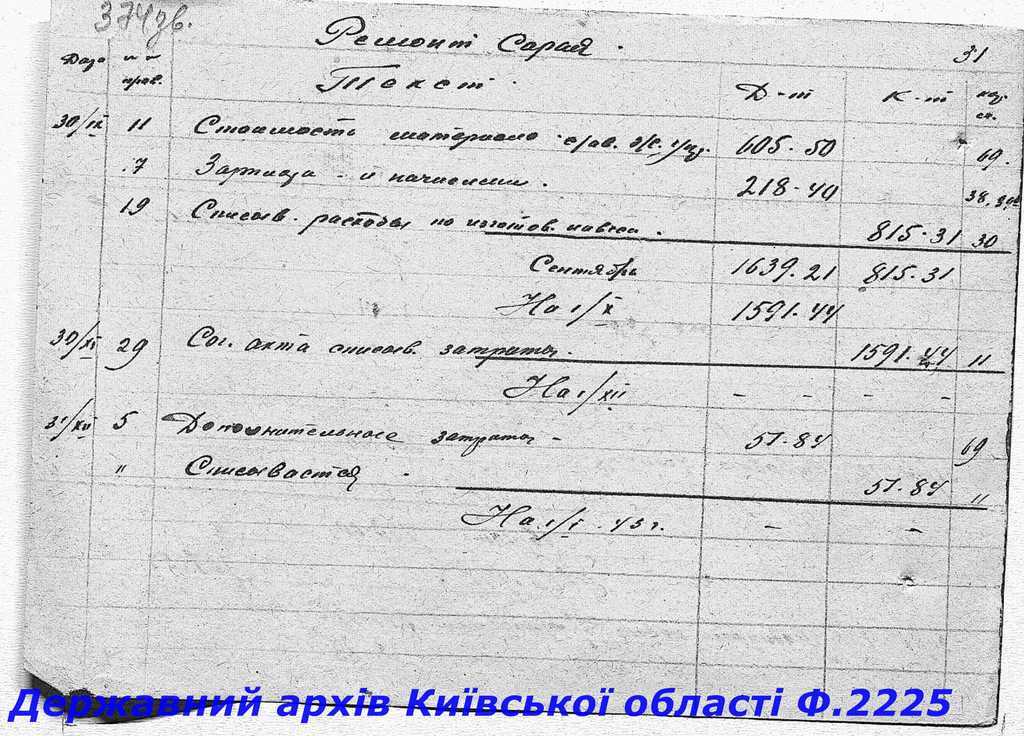 374 зв.
Ремонт Сарая. 31
Дата
Текст. Д-т К-т
30/IX 11 Стоимость материала 605-50 69.
17 Зарплата и начислени. 218-40 38,
19 Списыв. расходы по изготов. навеса. 815-31 30
Сентябрь 1639.21 815-31
На 1/X 1591-44
30/XI 29 Сог. акта списыв. затраты. 1591.44 11
На 1/XII - - - -
31/XII 5 Дополнительные затраты - 51-84 69
" Списывается 51-84 "
На 1/I-43 г. - -
Державний архів Київської області Ф.2225